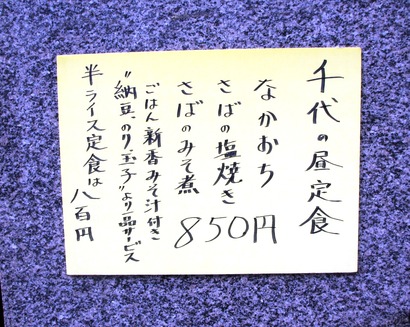 千代の昼定食
なかおち
さばの塩焼き
さばのみそ煮
850円
ごはん新香みそ汁付き
"納豆、のり、玉子"より一品サービス
半ライス定食は八百円